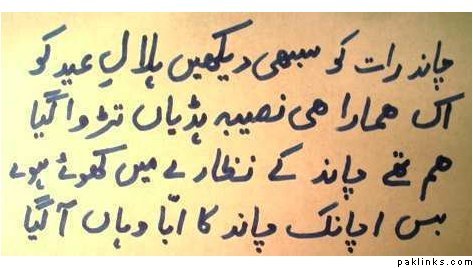 چاند رات کو سبھی دیکھیں ہلالِ عید کو
اک ھمارا ھی نصیبہ ہڈیاں تڑوا گیا
ھم تھے چاند کے نظارے میں کھوئے ہوئے
بس اچانک چاند کا ابّا وہاں آ گیا
paklinks.com